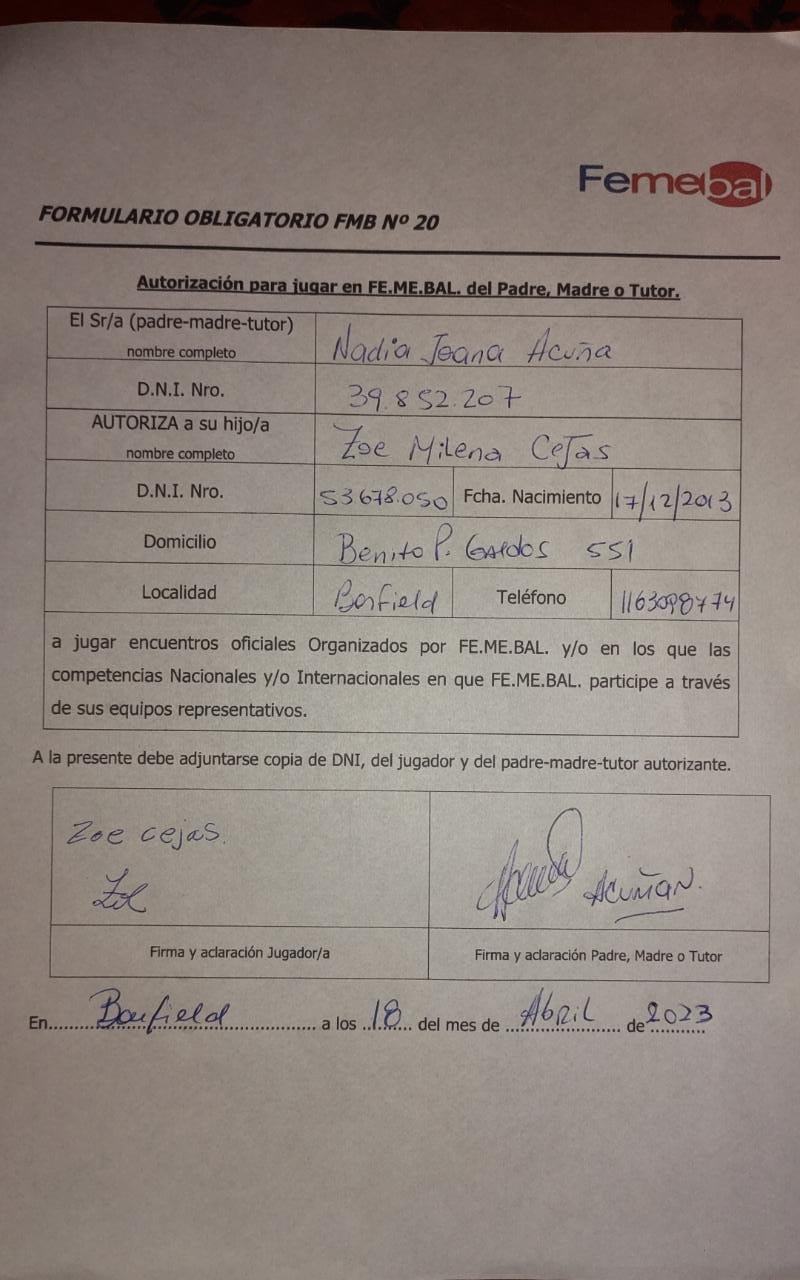 Femebal
FORMULARIO OBLIGATORIO FMB Nº 20
Autorización para jugar en FE.ME.BAL. del Padre, Madre o Tutor.
El Sr/a (padre-madre-tutor)
nombre completo
Nadia Joana Acuña
D.N.I. Nro.
39.852.207
AUTORIZA a su hijo/a
nombre completo
Zoe Milena Cejas
D.N.I. Nro.
53678.050
Fcha. Nacimiento
17/12/2013
Domicilio
Benito P. Galdos 551
Localidad
Banfield
Teléfono
a jugar encuentros oficiales Organizados por FE.ME.BAL. y/o en los que las
competencias Nacionales y/o Internacionales en que FE.ME.BAL. participe a través
de sus equipos representativos.
A la presente debe adjuntarse copia de DNI, del jugador y del padre-madre-tutor autorizante.
Zoe cejas.
Zoe
Acuña N.
Firma y aclaración Jugador/a
Firma y aclaración Padre, Madre o Tutor
En Banfield a los 18 del mes de Abril de 2023